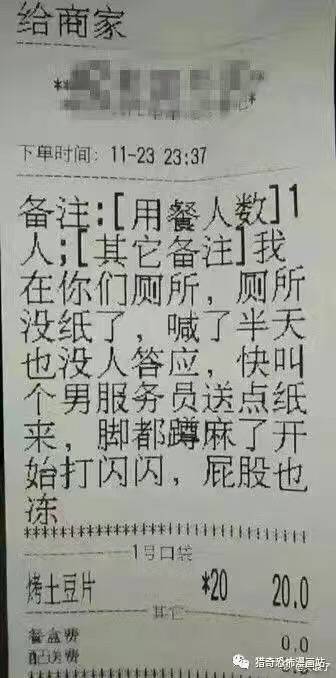 给商家
下单时间: 11-23 23:37
备注:[用餐人数]1
人;[其它备注]我
在你们厕所，厕所
没纸了，喊了半天
也没人答应，快叫
个男服务员送点纸
来，脚都蹲麻了开
始打闪闪，屁股也
冻
1号口袋
烤土豆片 *20 20.0
其它
餐盒费 0.0
配送费
猎奇恐怖漫画站